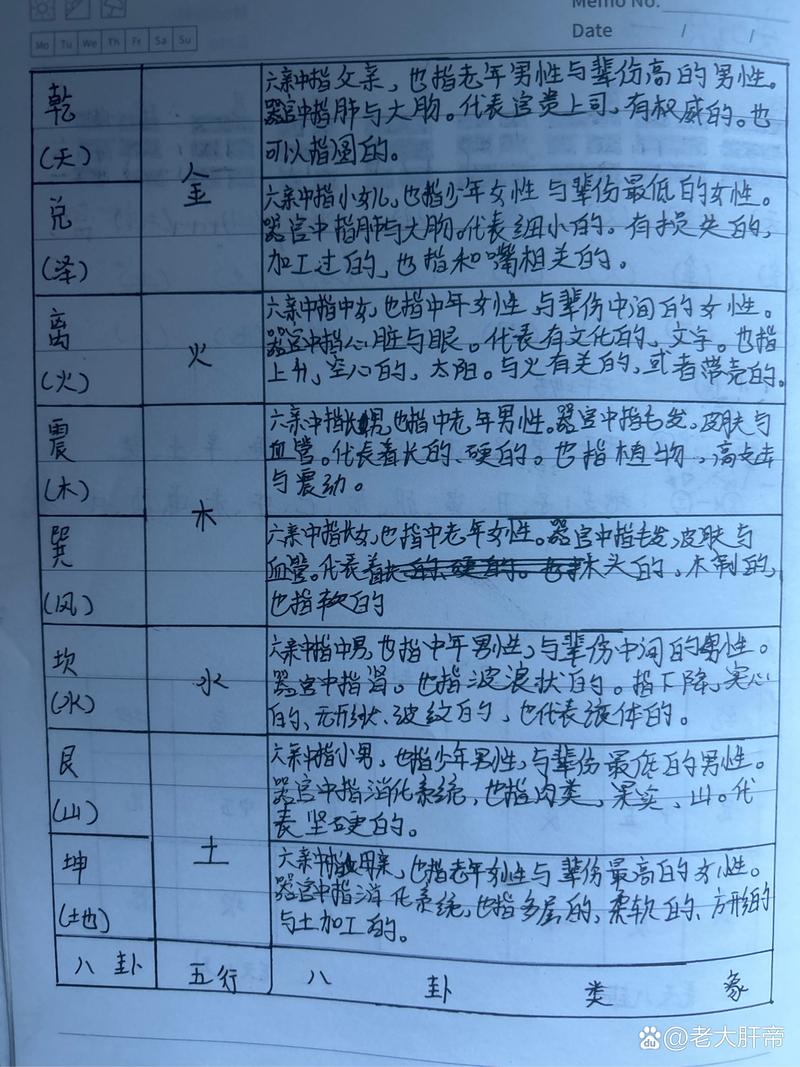 Memo No.
Date / /
Mo Tu We Th Fr Sa Su
乾
(天)
金
六亲中指父亲,也指老年男性与辈份高的男性。
器官中指肺与大肠。代表官贵上司,有权威的。也
可以指圆的。
兑
(泽)
六亲中指小女儿,也指少年女性与辈份最低的女性。
器官中指肺与大肠。代表细小的。有损失的,
加工过的,也指和嘴相关的。
离
(火)
火
六亲中指中女,也指中年女性与辈份中间的女性。
器官中指心脏与眼。代表有文化的、文字。也指
上升,空心的,太阳。与火有关的,或者带壳的。
震
(木)
木
六亲中指长男,也指中老年男性。器官中指毛发,皮肤与
血管。代表着长的、硬的。也指植物,高
与震动。
巽
(风)
六亲中指长女,也指中老年女性。器官中指毛发,皮肤与
血管。代表木头的,木制的,
也指软的
坎
(水)
水
六亲中指中男,也指中年男性,与辈份中间的男性。
器官中指肾。也指波浪状的。指下降,实心
的、无形状、波纹的,也代表液体的。
艮
(山)
土
六亲中指小男,也指少年男性,与辈份最低的男性。
器官中指消化系统,也指肉类,果实、山。代
表坚硬的。
坤
(地)
六亲中指母亲,也指老年女性与辈份最高的女性。
器官中指消化系统,也指多层的、柔软的、方形的
与土加工的。
八卦 五行 八卦类象
du @老大肝帝